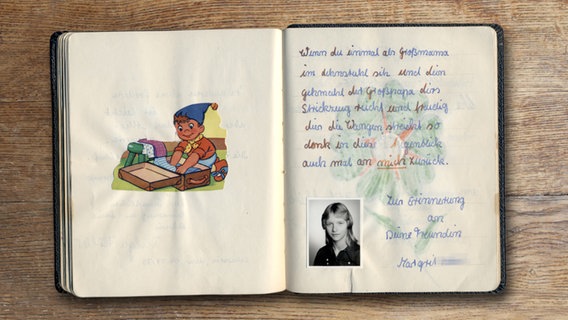 Wenn du einmal als Großmama
im Lehnstuhl sitzt und dein
Gemahl der Großpapa dirs
Strickzeug reicht und freudig
dir die Wangen streichelt so
denk in diesem Augenblick
auch mal an mich zurück.
Zur Erinnerung
an
Deine Freundin
Margret